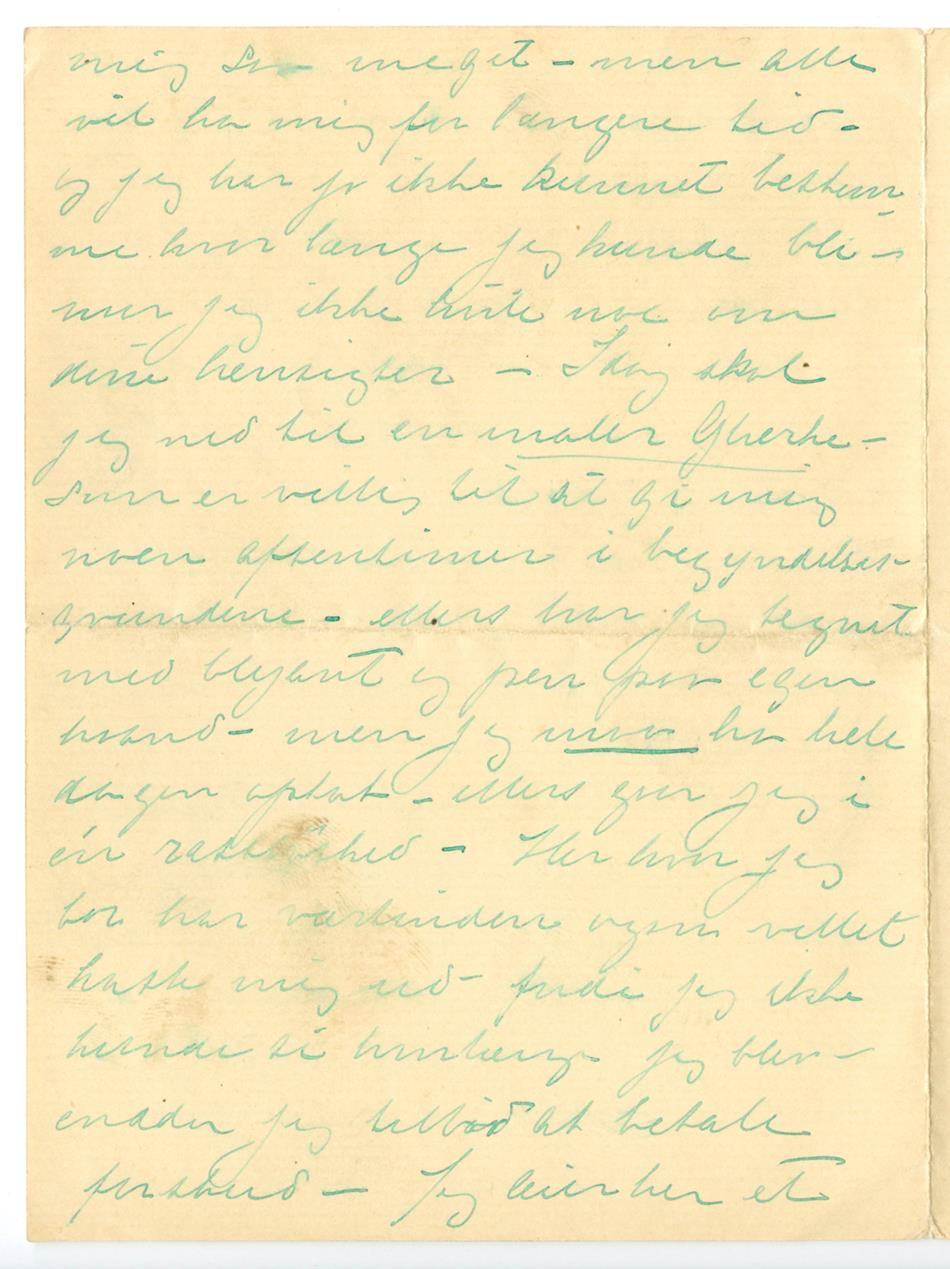 mig så meget – men alle
vil ha mig for længere tid –
og jeg har jo ikke kunnet bestem
me hvor længe jeg kunde bli –
når jeg ikke vidste noe om
dine hensigter – Idag skal
jeg ned til en maler Gherke –
som er villig til at gi mig
noen aftentimer i begyndelses-
grundene – ellers har jeg tegnet
med blyant og pen på egen
haand – men jeg må ha hele
dagen optat – ellers går jeg i
én rastløshed – Her hvor jeg
bor har værtinden også villet
kaste mig ud fordi jeg ikke
kunde si hvorlænge jeg blev –
endda jeg tilbød at betale
forskud – Jeg leier her et